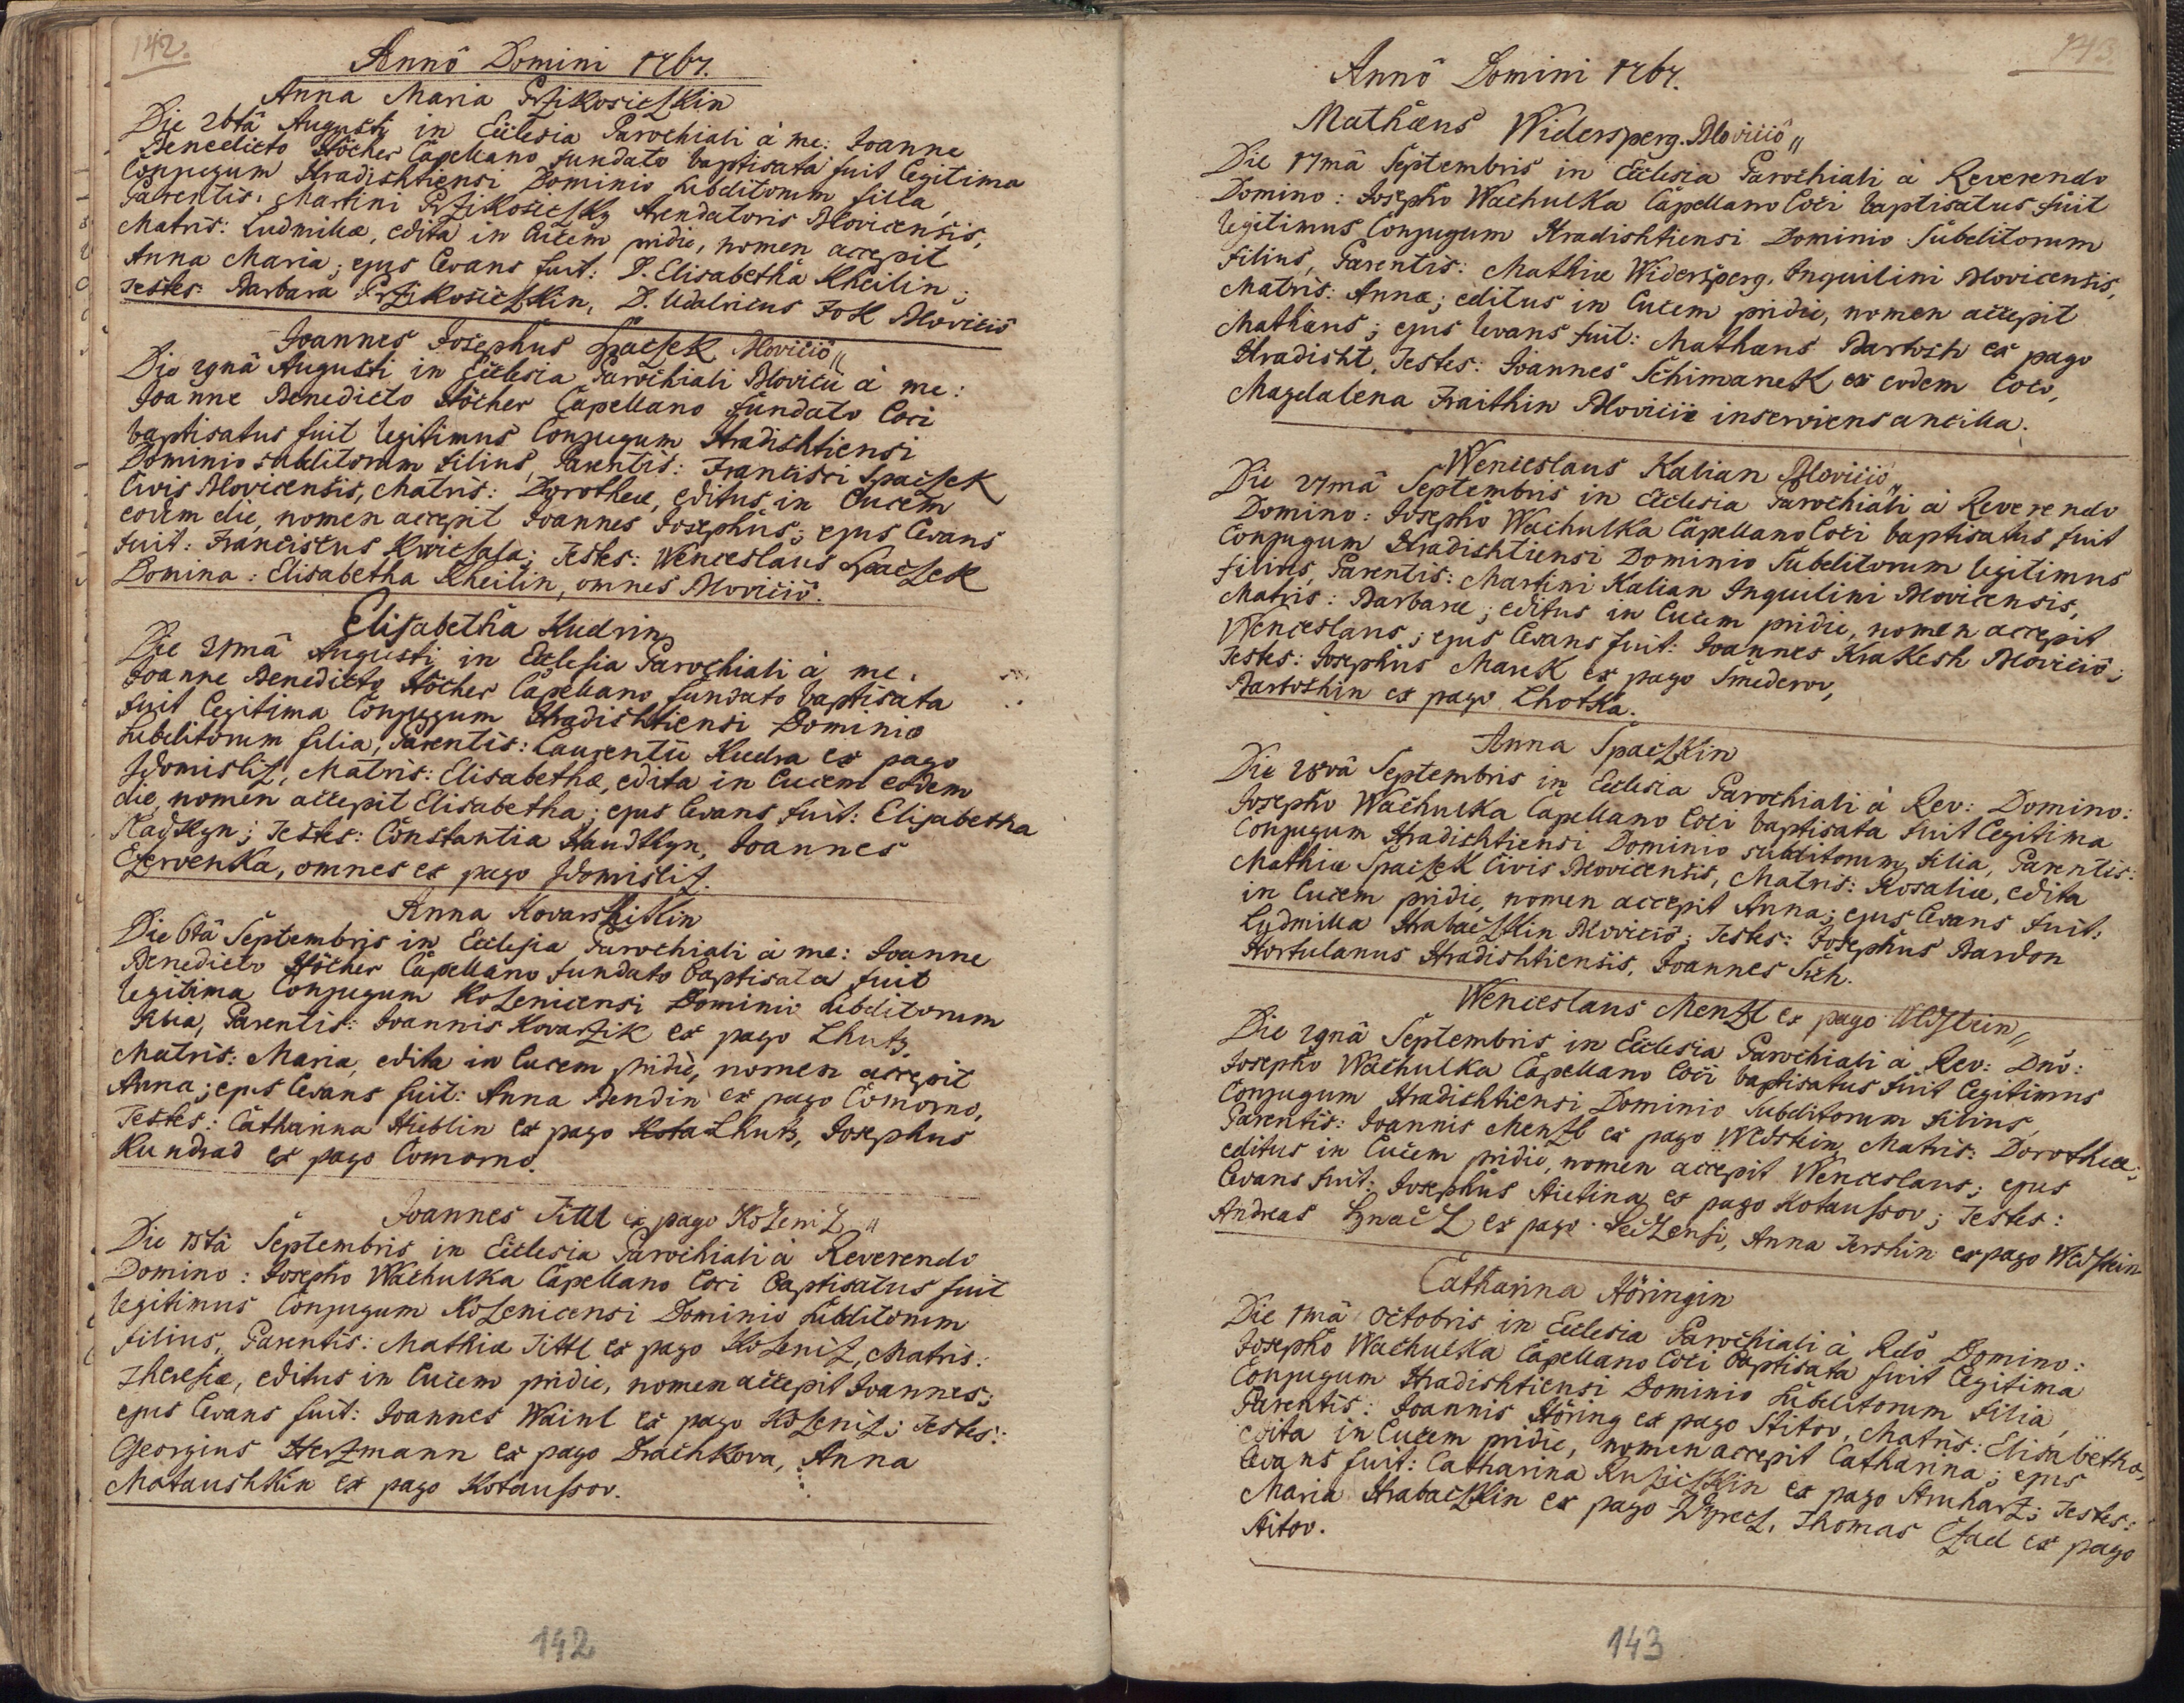 142.
Annô Domini 1767.
Anna Maria Przikosiczkin
Die 26tâ Augusti in Ecclesia Parochiali à me: Joanne
Benedicto Höcher Capellano fundato baptisata fuit legitima
Conjugum Hradishtiensi Dominio subditorum filia,
Parentis: Martini Przikosiczky Arendatoris Blovicensis,
Matris: Ludmillæ, edita in lucem pridie, nomen accepit
Anna Maria; ejus levans fuit: D. Elisabetha Kheilin;
Testes: Barbara Przikosiczkin, D. Udalricus Fok Bloviciô
Joannes Josephus Spaczek Bloviciô
Die 29nâ Augusti in Ecclesia Parochiali Blovicii à me:
Joanne Benedicto Höcher Capellano fundato loci
baptisatus fuit legitimus Conjugum Hradishtiensi
Dominio subditorum filius, Parentis: Francisci Spaczek
Civis Blovicensis, Matris: Dorotheæ, editus in lucem
eodem die, nomen accepit Joannes Josephus; ejus levans
fuit: Franciscus Kwiczala; Testes: Wenceslaus Spaczek
Domina: Elisabetha Kheilin, omnes Bloviciô.
Elisabetha Kudrin
Die 31mâ Augusti in Ecclesia Parochiali à me.
Joanne Benedicto Höcher Capellano fundato baptisata
fuit legitima Conjugum Hradishtiensi Dominio
subditorum filia, Parentis: Laurentii Kudra ex pago
Zdomisliz, Matris: Elisabethæ, edita in lucem eodem
die, nomen accepit Elisabetha; ejus levans fuit: Elisabetha
Testes: Constantia Joannes
Czervenka, omnes ex pago Zdomisliz.
Anna Kovarzikin
Die 6tâ Septembris in Ecclesia Parochiali à me: Joanne
Benedicto Höcher Capellano fundato baptisata fuit
legitima Conjugum Kozenicensi Dominio subditorum
filia, Parentis: Joannis Kovarzik ex pago Lhuts,
Matris: Maria, edita in lucem pridie, nomen accepit
Anna; ejus levans fuit: Anna Bendin ex pago Comorno,
Testes: Catharina Hieblin ex pago Lhuts, Josephus
Kundrad ex pago Comorno.
Joannes Tittl ex pago Kozeniz
Die 15tâ Septembris in Ecclesia Parochiali à Reverendo
Domino: Josepho Wachulka Capellano loci baptisatus fuit
legitimus Conjugum Kozenicensi Dominio subditorum
filius, Parentis: Mathiæ Tittl ex pago Kozeniz, Matris:
Theresiæ, editus in lucem pridie, nomen accepit Joannes;
ejus levans fuit: Joannes Wainl ex pago Kozeniz; Testes:
Georgius Herzmann ex pago Drachkova, Anna
Mataushkin ex pago Kotaussov.
142
143.
Annô Domini 1767.
Mathæus Widersperg. Bloviciô
Die 17mâ Septembris in Ecclesia Parochiali à Reverendo
Domino: Josepho Wachulka Capellano loci baptisatus fuit
legitimus Conjugum Hradishtiensi Dominio subditorum
filius, Parentis: Mathiæ Widersperg, Inquilini Blovicensis,
Matris: Annæ; editus in lucem pridie, nomen accepit
Mathæus; ejus levans fuit: Mathæus Bartosh ex pago
Hradisht, Testes: Joannes Schimanek ex eodem loco,
Magdalena Fraithin Blovicii inserviens ancilla.
Wenceslaus Kalian Bloviciô
Die 27mâ Septembris in Ecclesia Parochiali à Reverendo
Domino: Josepho Wachulka Capellano loci baptisatus fuit
Conjugum Hradishtiensi Dominio subditorum legitimus
filius, Parentis: Martini Kalian Inquilini Blovicensis,
Matris: Barbaræ; editus in lucem pridie, nomen accepit
Wenceslaus; ejus levans fuit: Joannes Krakesh Bloviciô;
Testes: Josephus Marek ex pago Smederov,
Bartoshin ex pago Lhotka.
Anna Spaczkin
Die 28vâ Septembris in Ecclesia Parochiali à Rev: Domino:
Josepho Wachulka Capellano loci baptisata fuit legitima
Conjugum Hradishtiensi Dominio subditorum filia, Parentis:
Mathiæ Spaczek Civis Blovicensis, Matris: Rosaliæ, edita
in lucem pridie, nomen accepit Anna; ejus levans fuit:
Ludmilla Hrabaczkin Bloviciô; Testes: Josephus Bardon
Hortulanus Hradishtiensis, Joannes
Wenceslaus Menzl ex pago Wldstein
Die 29nâ Septembris in Ecclesia Parochiali à Rev: Dnô:
Josepho Wachulka Capellano loci baptisatus fuit legitimus
Conjugum Hradishtiensi Dominio subditorum filius,
Parentis: Joannis Menzl ex pago Wldstein, Matris: Dorotheæ;
editus in lucem pridie, nomen accepit Wenceslaus; ejus
levans fuit: Josephus Hietina ex pago Kotaussov; Testes:
Andreas ex pago Anna Jershin ex pago Wldstein
Catharina Höringin
Die 1mâ Octobris in Ecclesia Parochiali à Rdô Domino:
Josepho Wachulka Capellano loci baptisata fuit legitima
Conjugum Hradishtiensi Dominio subditorum filia,
Parentis: Joannis Höring ex pago Stitov, Matris: Elisabethæ,
edita in lucem pridie, nomen accepit Catharina; ejus
levans fuit: Catharina Ruziczkin ex pago Struharz; Testes:
Maria Hrabaczkin ex pago Thomas Czad ex pago
Stitov.
143